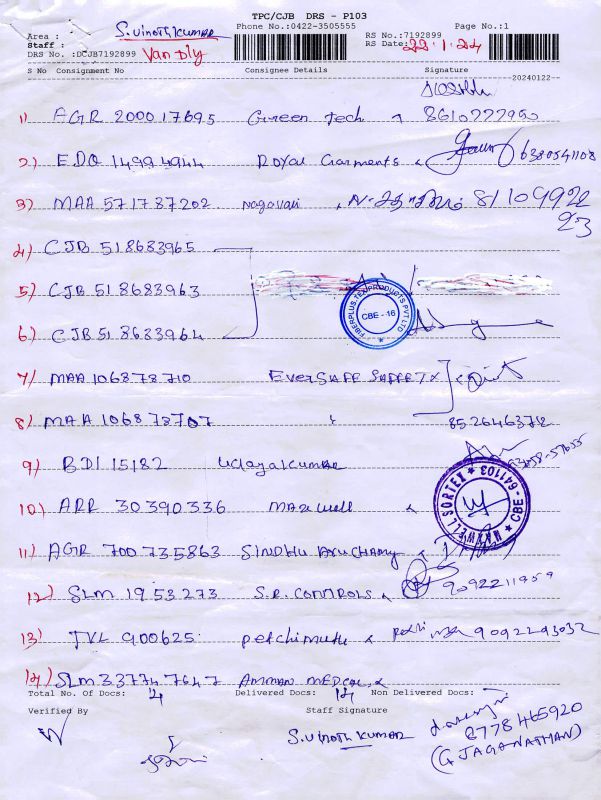 TPC/CJB DRS - P103
Phone No.:0422-3505555 Page No.:1
Area : S.Vinothkumar RS No.:7192899
Staff : RS Date: 22.1.24
DRS No. :DCJB7192899 Van Dly
S No Consignment No Consignee Details Signature
20240122--
1) AGR 200017695 Green tech 8610777950
2) EDQ 14994944 Royal Garments 6380541108
3) MAA 571787202 Nagavari 81109922
23
4) CJB 518683965
5) CJB 518683963
FIBERPLUS.TEX PRODUCTS PVT LTD
CBE - 16
6) CJB 518683964
7) MAA 106878710 EverSafe Saffety
8) MAA 106878707 852646372
9) BDI 15182 Udayakumar 63858-57655
10) ARR 30390336 maxwell
MAXWELL SORTEX CBE-641103
11) AGR 700735863 SINDHU
12) SLM 1953273 S.R. CONTROLS 9092211959
13) TVL 900625 petchimuthu 9092293032
14) SLM 337747647 AMMAN MEDCAL
Total No. Of Docs: 14 Delivered Docs: 14 Non Delivered Docs:
Verified By Staff Signature
S.VINOTH KUMAR
8778465920
(G JAGANATHAN)